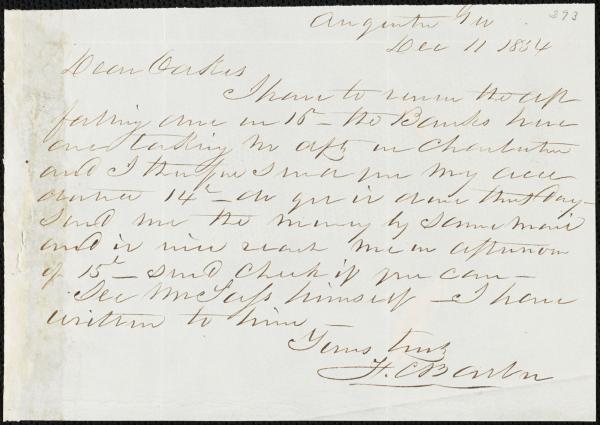 Augusta Ga 293
Dec 11 1854
Dear Oakes
I have to renew the
falling due in 15 - the Banks here
are taking no in Charleston
and I therefore send you my accep
tance 14 - do get it done that day -
Send me the money by same mail
and it will reach me in afternoon
of 15th - send check if you can -
See himself - I have
written to him
Yours truly
H. C. Barton